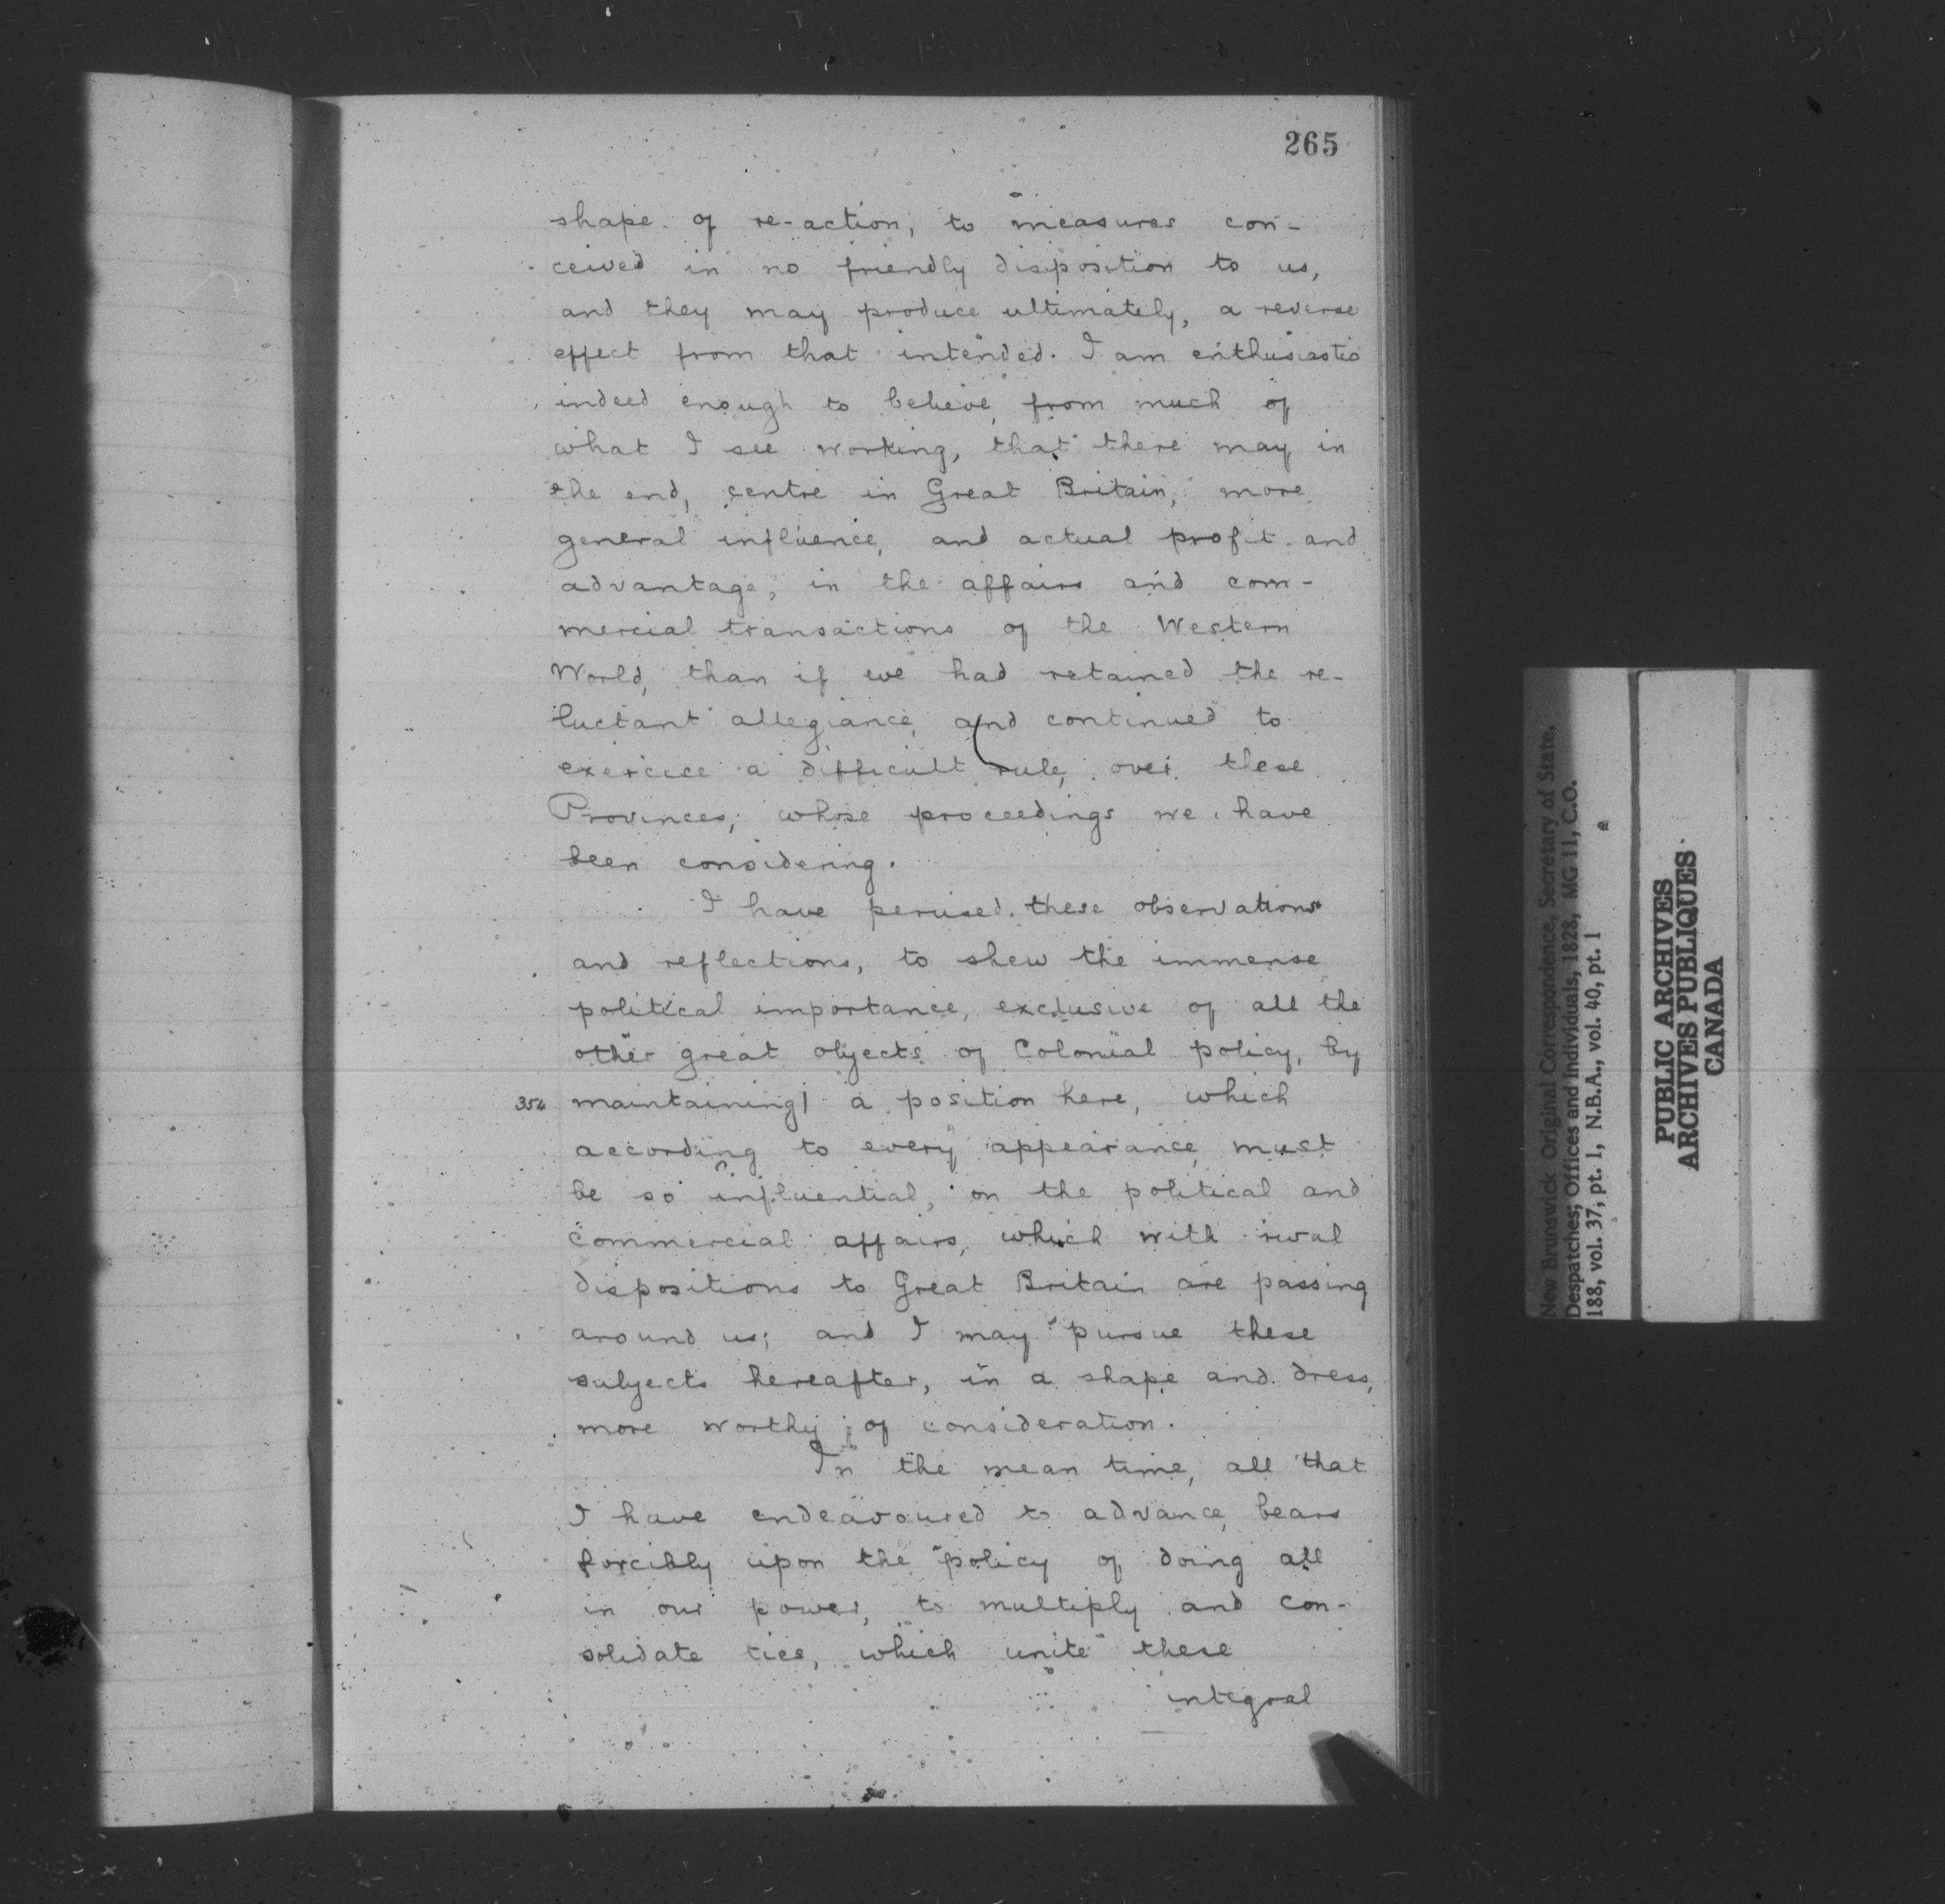 265
shape of re-action, to measures con-
ceived in no friendly disposition to us,
and they may produce ultimately, a reverse
effect from that intended. I am enthusiastic
indeed enough to believe, from much of
what I see working, that there may in
the end, centre in Great Britain, more
general influence, and actual profit and
advantage, in the affairs and com-
mercial transactions of the Western
World, than if we had retained the re-
luctant allegiance, and continued to
exercise a difficult rule, over these
Provinces, whose proceedings we have
been considering.
I have perused these observations
and reflections, to shew the immense
political importance, exclusive of all the
other great objects of Colonial policy, by
354 maintaining| a position here, which
according to every appearance must
be so influential, on the political and
commercial affairs, which with rival
dispositions to Great Britain are passing
around us; and I may pursue these
subjects hereafter, in a shape and dress,
more worthy of consideration.
In the mean time, all that
I have endeavoured to advance, bears
forcibly upon the policy of doing all
in our power, to multiply and con-
solidate ties, which unite these
integral
New Brunswick Original Correspondence, Secretary of State,
Despatches; Offices and Individuals, 1828, MG 11, C.O.
188, vol. 37, pt. 1, N.B.A., vol. 40, pt. 1
PUBLIC ARCHIVES
ARCHIVES PUBLIQUES
CANADA